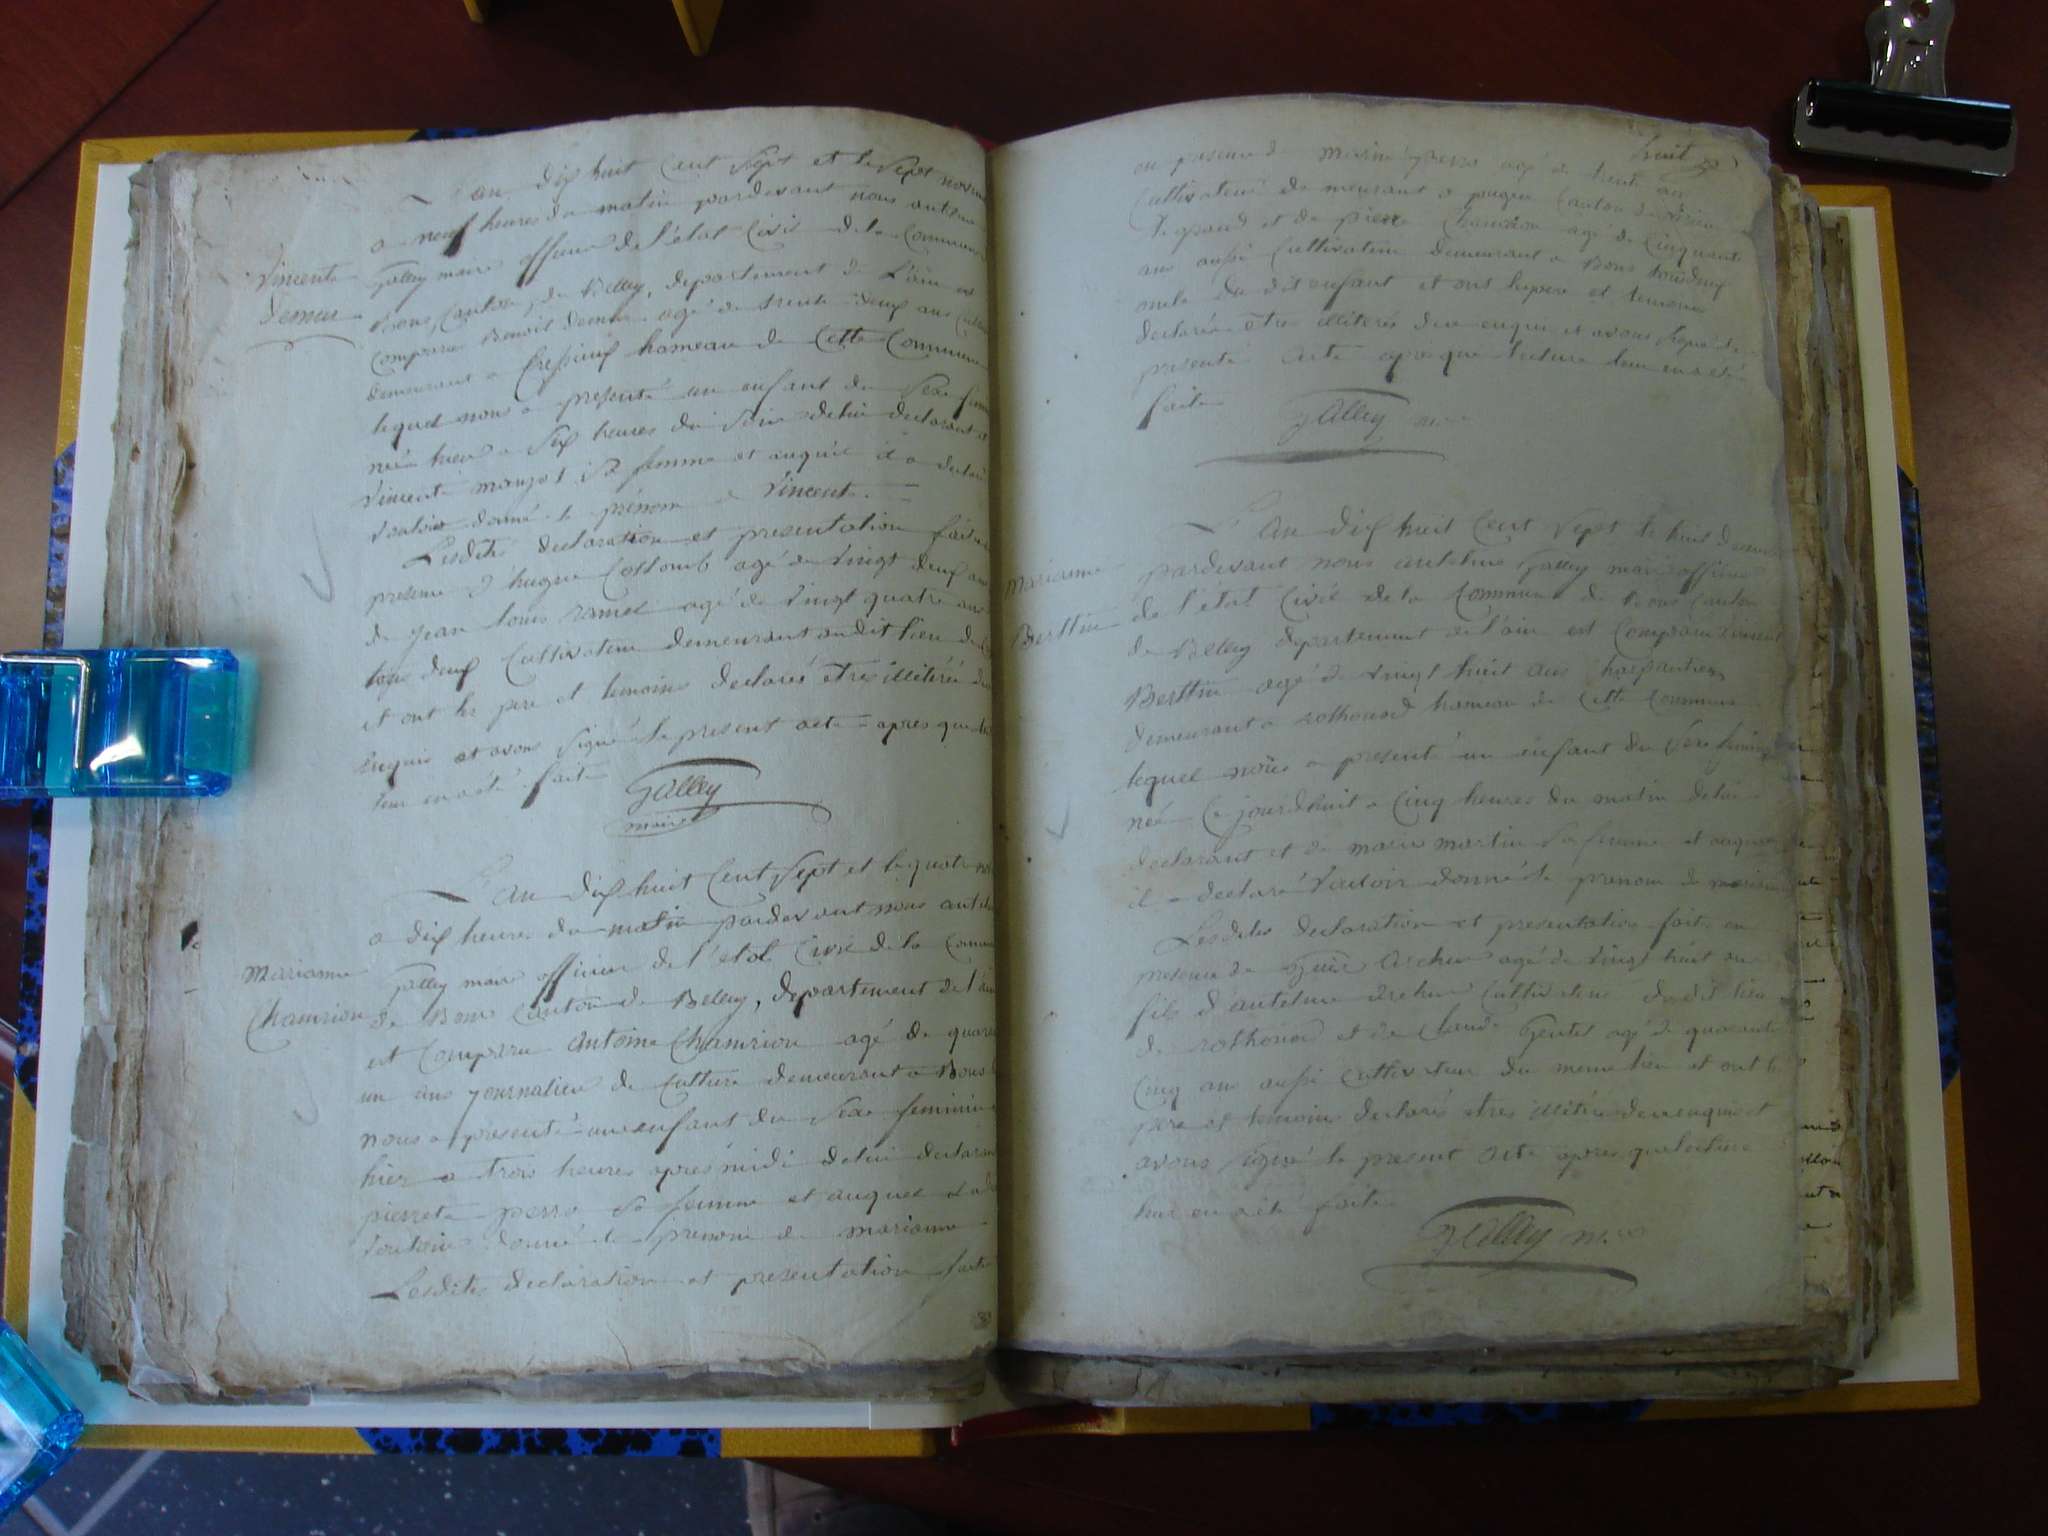 L'an dix huit cent sept et le sept
a neuf heures du matin pardevant nous antelme
Vincente
Demeur
Galley maire officier de l'état civil de la commune
Bons, Canton de Belley, departement de L'ain est
comparu Benoit demeur agé de trente deux ans
demeurant a Cressieux hameau de Cette Commune
lequel nous a presenté un enfant du Sexe
née hier a Six heures du Soir de lui declarant et
Vincente sa femme et auquel il a declaré
vouloir donné le prénom de Vincente.
Lesdites declaration et presentation faite
presence d'hugue Collomb agé de vingt deux ans
de jean louis ramel agé de vingt quatre ans
tous deux Cultivateur demeurant audit lieu de
et ont les pere et temoins declarés etres illiterés de
enquis et avons Signé le present acte apres que
leur en a été faite
Galley
maire
L'an dix huit Cent Sept et le quatre
a dix heures du matin pardevant nous
Marianne
Chamrion
Galley maire officier de l'état Civil de la Commune
de Bons Canton de Belley, departement de l'ain
est Comparu antoine Chamrion agé de quarante
un ans journalier de Culture demeurant a Bons
nous a presenté un enfant du Sexe feminin
hier a trois heures après midi de lui declarant
pierrete perro sa femme et auquel
vouloir donné le prenom de marianne
Lesdites declaration et presentation faite
huit
en presence de perro agé de trente ans
Cultivateur demeurant a pugieu Canton de Virieu
le grand et de pierre Chamrion agé de Cinquante
ans aussi Cultivateur demeurant a Bons
du dit enfant et ont les pere et temoins
declarés etres illiterés de enquis et avons signé le
presente acte apres que lecture leur en a été
faite
Galley
L'an dix huit Cent Sept le huit
Marianne
Berttin
pardevant nous antelme Galley maire officier
de l'état Civil de la Commune de Bons Canton
de Belley departement de l'ain est Comparu Vincent
Berttin agé de vingt huit ans charpentier
demeurant a rothonod hameau de Cette Commune
lequel nous a presenté un enfant du Sexe feminin
née Ce jourdhuit a Cinq heures du matin de lui
declarant et de marie martin sa femme et auquel
il a declaré vouloir donné le prenom de marianne
Lesdites declaration et presentation faite en
presence de agé de vingt huit ans
fils d'antelme Cultivateur du dit lieu
de rothonod et de Claude Gentet agé de quarante
Cinq ans aussi Cultivateur du meme lieu et ont les
pere et temoins declarés etres illiterés de enquis et
avons signé le present acte apres que lecture
leur en a été faite
Galley